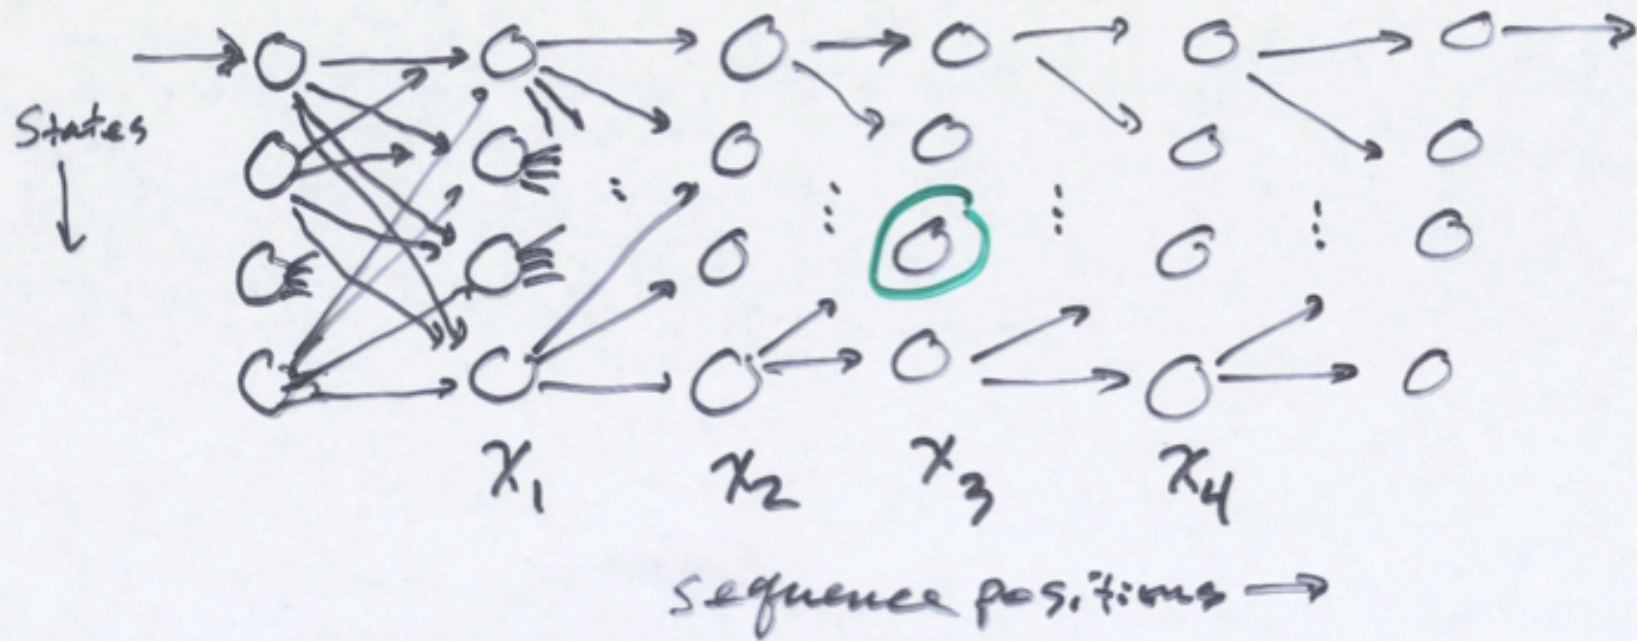 States
x₁ x₂ x₃ x₄
sequence positions